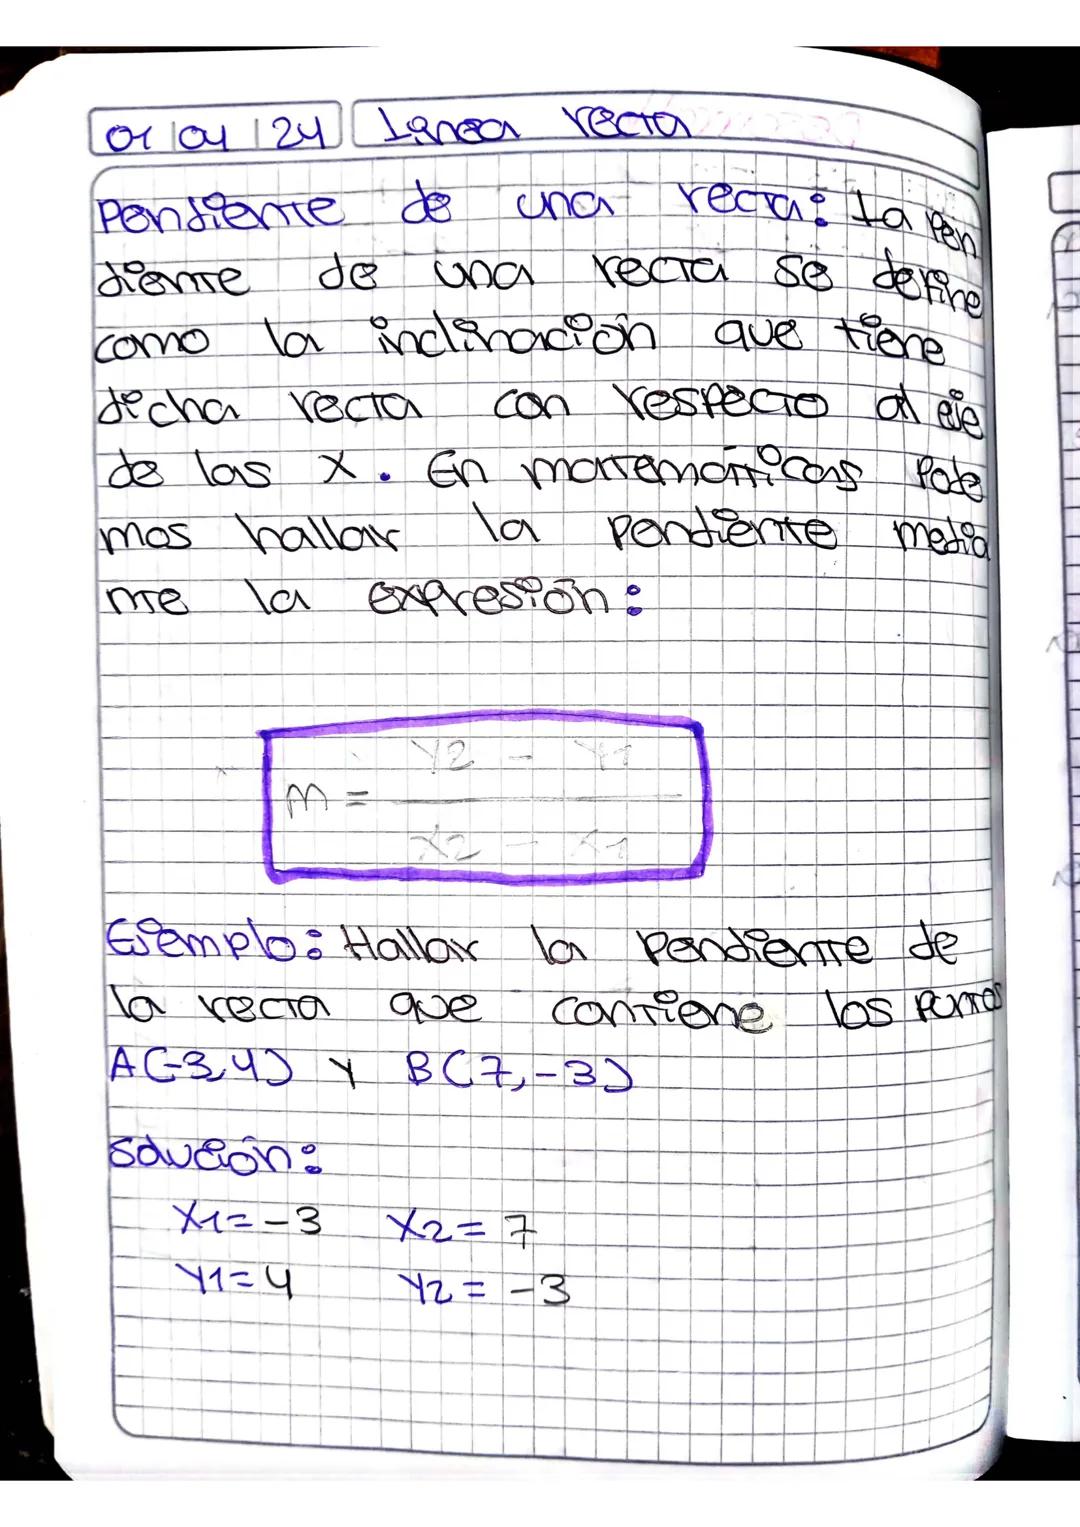 01/04/24 Línea recta
Pendiente de una recta: La pen
diente de una recta se define
como la inclinación que tiene
dicha recta con respecto al eje
de las X. En matemáticas pode
mos hallar la pendiente media
nte la expresión:
m = Y2 - Y1
X2 - X1
Ejemplo: Hallar la pendiente de
la recta que contiene los puntos
A(-3,4) Y B(7,-3)
Solución:
X1=-3 X2= 7
Y1=4 Y2 = -3